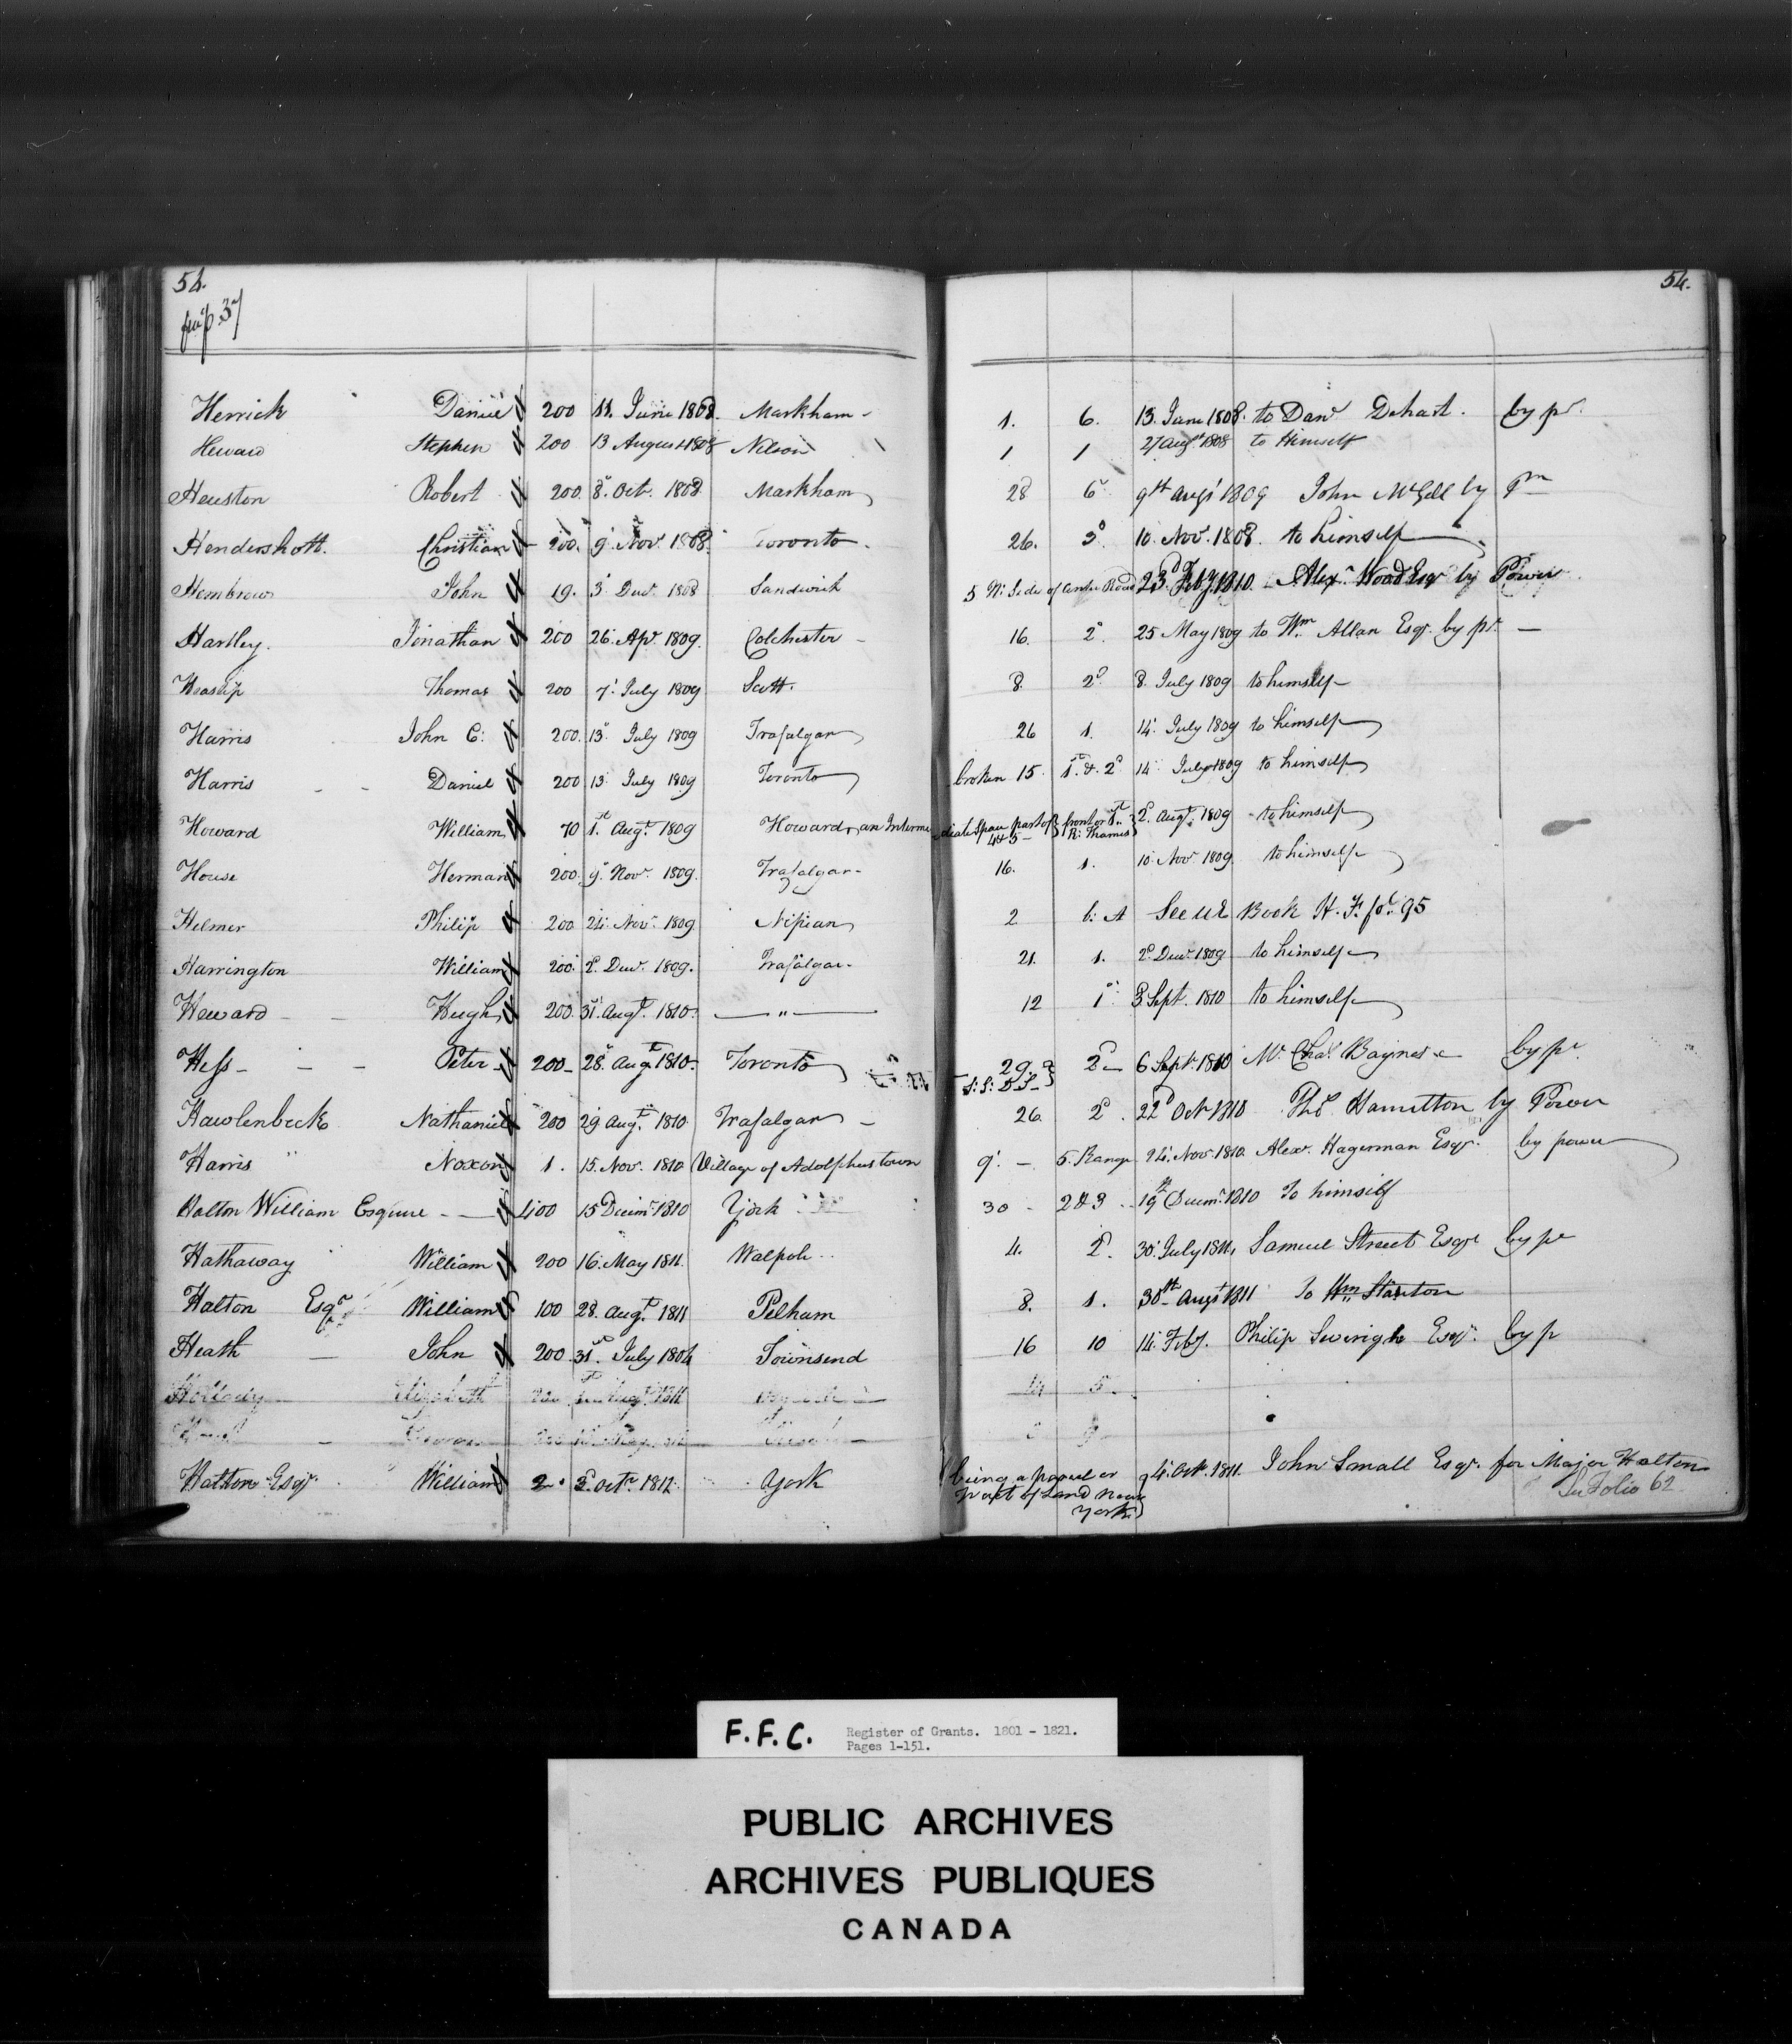 54.
fm p. 37
54.
Herrick Daniel 200 11. June 1808. Markham 1. 6. 13. June 1808. to Danl Dehart. by pr.
Heward Stephen 200 13 August 1808 Nelson 1 1 27 Augst 1808 to Himself
Heuston Robert 200. 8. Oct. 1808. Markham 28 6 9th Augt 1809 John McGill by
Hendershott. Christian 200. 9. Nov. 1808. Toronto 26. 3d. 10. Nov. 1808. to himself
Hembrow John 19. 3. Decr. 1808 Sandwich 5 N: Side of Center Road 23d. Feby. 1810. Alexr. Wood Esqr by Power
Hartley. Jonathan 200 26. Apr. 1809. Colchester 16. 2d. 25 May 1809 to Wm. Allan Esqr. by pr.
Heaslip Thomas 200 7. July 1809 Scott. 8. 2d. 8. July 1809 to himself
Harris John C: 200. 13. July 1809 Trafalgar 26 1. 14. July 1809 to himself
Harris Daniel 200 13. July 1809 Toronto broken 15. 1st. & 2d. 14. July 1809 to himself
Howard William 70 1st. Augt. 1809 Howard, an Interme-diate Space part of 4 & 5 front or 1st. R: Thames 2d. Augt. 1809 to himself
House Herman 200. 9. Nov. 1809. Trafalgar 16. 1. 10. Nov. 1809 to himself
Helmer Philip 200 24. Nov. 1809 Nepean 2 b: A See UE Book H. F. fol. 95
Harrington William 200. 2d. Decr. 1809. Trafalgar 21. 1. 2d. Decr. 1809 to himself
Heward Hugh 200. 31. Augt. 1810. " 12 1st 3 Sept. 1810 to himself
Hess Peter 200 28. Augt 1810. Toronto 29. S: S: D S 2d 6 Sept. 1810 Mr. Chas. Baynes by pr.
Hawlenbeck Nathaniel 200 29. Augt. 1810. Trafalgar 26. 2d. 22d Octr 1810 Hamilton by Power
Harris " Noxon 1. 15. Nov. 1810 Village of Adolphustown 9. 5. Range 24. Nov 1810. Alexr. Hagerman Esqr. by power
Halton William Esquire 400 15 Decimr 1810 York 30 2 & 3 19th Decimr. 1810 To himself
Hathaway William 200 16. May 1811. Walpole 4. 2d. 30. July 1811, Samuel Street Esqr by pr
Halton Esqr. William 100 28. Augt. 1811 Pelham 8. 1. 30th Augt 1811 To Wm. Stanton
Heath John 200 31st. July 1804 Townsend 16 10 14. Feby. Philip Esqr. by p
Elizabeth 200 Augt. 1811 5.
200
Halton Esqr. William 2. 2d. Octr. 1812. York being a parcel or tract of Land near York 4. Octr. 1811. John Small Esqr. for Major Halton
See Folio 62
F.F.C. Register of Grants. 1801 - 1821.
Pages 1-151.
PUBLIC ARCHIVES
ARCHIVES PUBLIQUES
CANADA